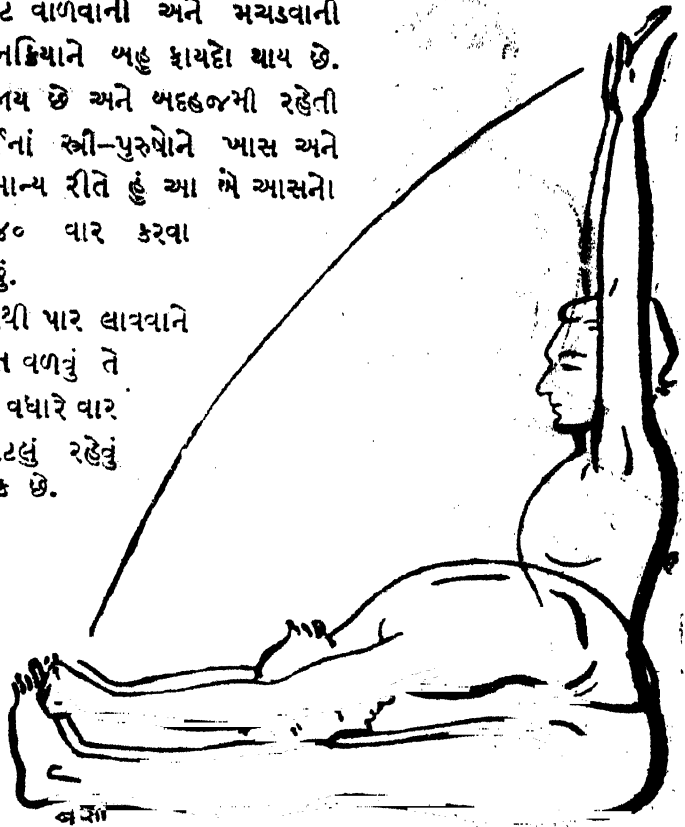 ટ વાળવાની અને મચડવાની
નક્રિયાને બહુ ફાયદો થાય છે.
ાય છે અને બદહજમી રહેતી
ઈનાં સ્ત્રી-પુરુષોને ખાસ અને
માન્ય રીતે હું આ બે આસનો
૪૦ વાર કરવા
છું.
થી પાર લાવવાને
ત વળવું તે
વધારે વાર
ટલું રહેવું
ક છે.